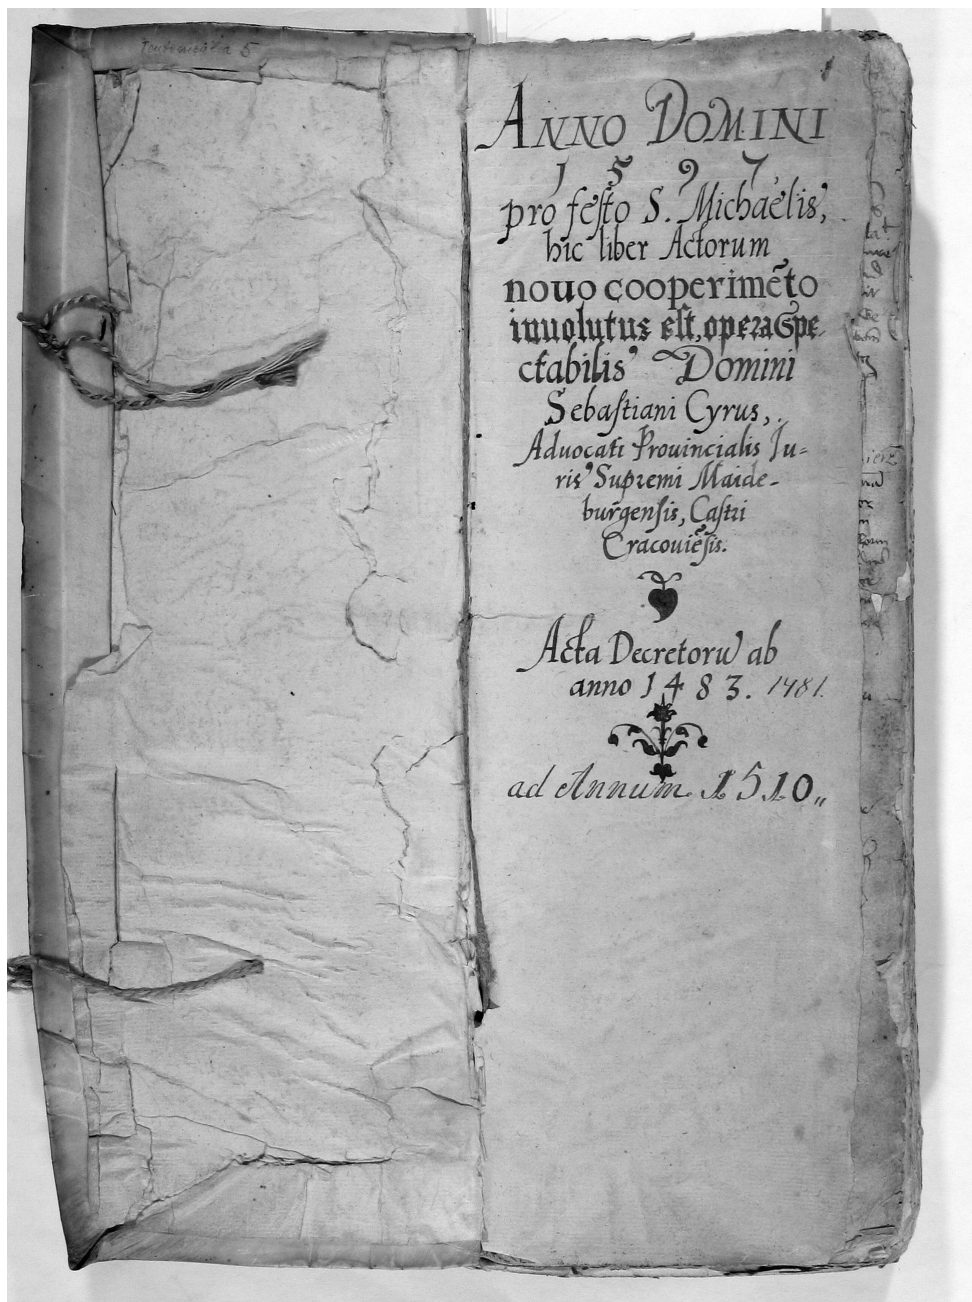 Teutonicalia 5
ANNO DOMINI
1 5 9 7,
pro festo S. Michaelis,
hic liber Actorum
nouo cooperimẽto
inuolutus est, opera Spe
ctabilis Domini
Sebastiani Cyrus,
Aduocati Prouincialis Iu-
ris Supremi Maide-
burgensis, Castri
Cracouiẽsis.
Acta Decretorũ ab
anno 1483. 1481.
ad Annum 1510„